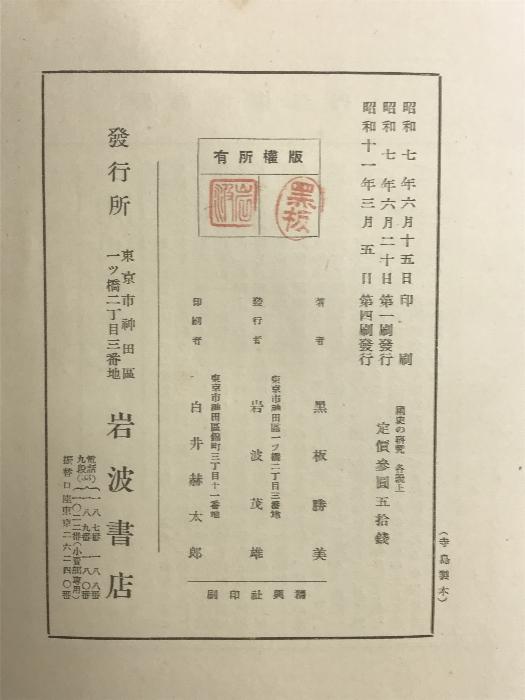 昭和七年六月十五日印刷
昭和七年六月二十日第一刷發行
昭和十一年三月五日第四刷發行
國史の研究 各說上
定價參圓五拾錢
版權所有
黑板
岩波
著者 黑板勝美
東京市神田區一ツ橋二丁目三番地
發行者 岩波茂雄
東京市神田區錦町三丁目十一番地
印刷者 白井赫太郎
精興社印刷
發行所
東京市神田區
一ツ橋二丁目三番地
岩波書店
電話
九段(33)
一八七番 一八八番
一八九番 一八〇番
二〇二二番(小賣部專用)
振替口座東京二六二四〇番
(寺島製本)